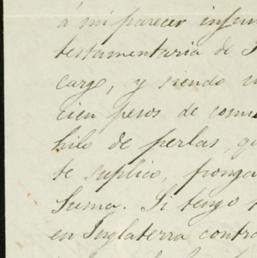 á mi parecer
testamentaria de
cargo, y siendo
cien pesos de
hilo de perlas,
te suplico, ponga
Suma. Si tengo
en Inglaterra contra